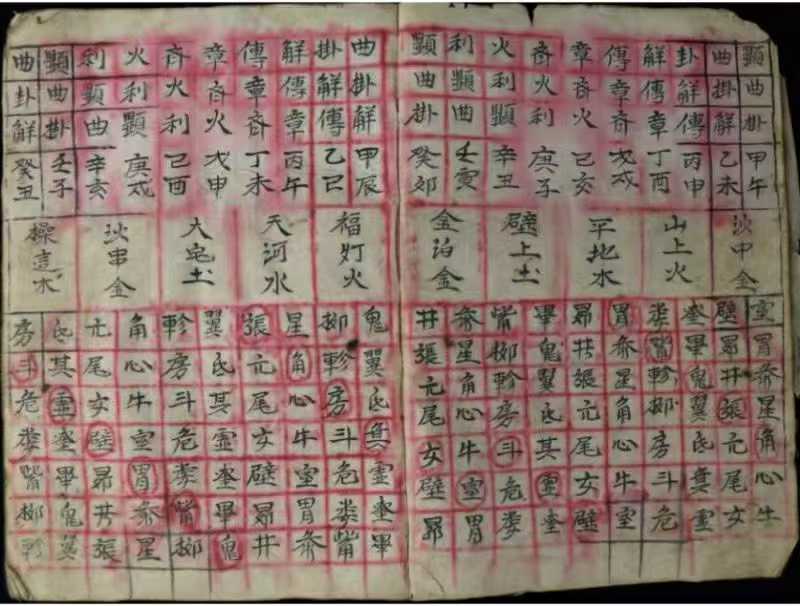 顯曲掛甲午
曲掛解乙未
卦解傳丙申
解傳章丁酉
傳章斉戊戌
章斉火己亥
斉火利庚子
火利顯辛丑
利顯曲壬寅
顯曲掛癸卯
沙中金
山上火
平地水
壁上土
金泊金
室胃参星角心牛
壁昴井張亢尾女
奎畢鬼翼氐其虚
娄觜軫柳房斗危
胃参星角心牛室
昴井張亢尾女壁
畢鬼翼氐其虚奎
觜柳軫房斗危娄
参星角心牛室胃
井張亢尾女壁昴
曲掛解甲辰
掛解傳乙巳
解傳章丙午
傳章斉丁未
章斉火戊申
斉火利己酉
火利顯庚戌
利顯曲辛亥
顯曲掛壬子
曲卦解癸丑
福灯火
天河水
大宅土
沙串金
操這木
鬼翼氐其虚奎畢
柳軫房斗危娄觜
星角心牛室胃参
張亢尾女壁昴井
翼氐其虚奎畢鬼
軫房斗危娄觜柳
角心牛室胃参星
亢尾女壁昴井張
氐其虚奎畢鬼翼
房斗危娄觜柳軫